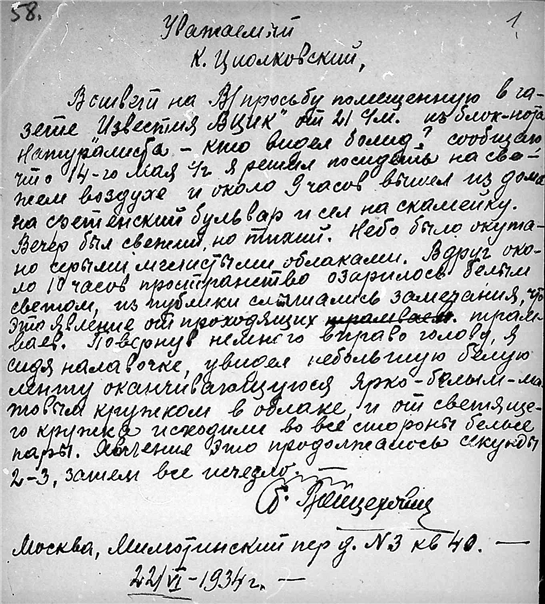 58.
1.
Уважаемый
К. Циолковский,
В ответ на В/просьбу помещенную в га-
зете „Известия ВЦИК" от 21 ч/м. из блок-нота
Натуралиста – кто видел болид? сообщаю
что 14-го мая с/г я решил посидеть на све-
жем воздухе и около 9 часов вышел из дома
на Сретенский бульвар и сел на скамейку.
Вечер был свежий, но тихий. Небо было окута-
но серыми мглистыми облаками. Вдруг око-
ло 10 часов пространство озарилось белым
светом, из публики слышались замечания, что
это явление от проходящих трамваев. трам-
ваев. Повернув немного вправо голову, я
сидя на лавочке, увидел небольшую белую
ленту оканчивающуюся ярко-белым-ма-
товым кружком в облаке, и от светяще-
го кружка исходили во все стороны белые
пары. Явление это продолжалось секунды
2-3, затем все исчезло.
Москва, Милютинский пер д. N3 кв 40. —
22/VI - 1934 г. —